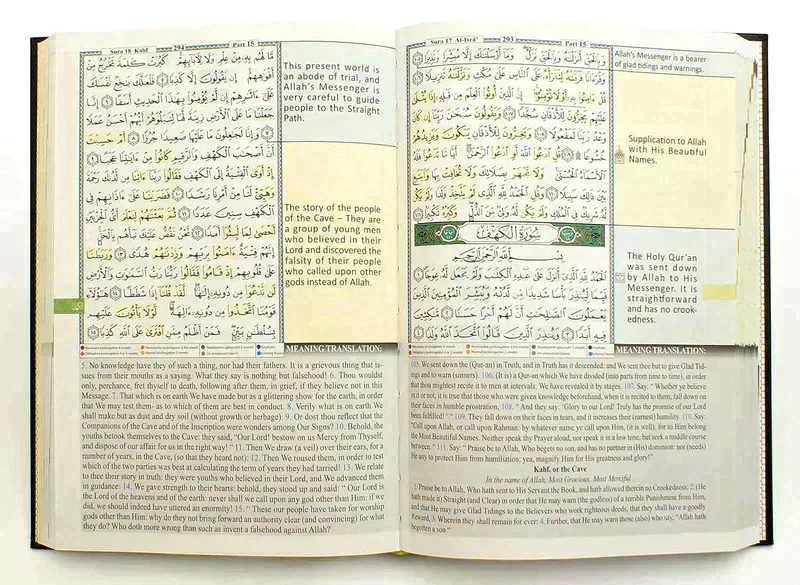 Sura 17 Al-Isrā' 293 Part 15
وَبِالْحَقِّ أَنزَلْنَاهُ وَبِالْحَقِّ نَزَلَ وَمَا أَرْسَلْنَاكَ إِلَّا مُبَشِّرًا وَنَذِيرًا ١٠٥
وَقُرْءَانًا فَرَقْنَاهُ لِتَقْرَأَهُ عَلَى النَّاسِ عَلَىٰ مُكْثٍ وَنَزَّلْنَاهُ تَنزِيلًا ١٠٦
قُلْ ءَامِنُوا بِهِ أَوْ لَا تُؤْمِنُوا إِنَّ الَّذِينَ أُوتُوا الْعِلْمَ مِن قَبْلِهِ إِذَا يُتْلَىٰ
عَلَيْهِمْ يَخِرُّونَ لِلْأَذْقَانِ سُجَّدًا ١٠٧ وَيَقُولُونَ سُبْحَانَ رَبِّنَا إِن كَانَ
وَعْدُ رَبِّنَا لَمَفْعُولًا ١٠٨ وَيَخِرُّونَ لِلْأَذْقَانِ يَبْكُونَ وَيَزِيدُهُمْ
خُشُوعًا ١٠٩ قُلِ ادْعُوا اللَّهَ أَوِ ادْعُوا الرَّحْمَٰنَ أَيًّا مَّا تَدْعُوا فَلَهُ
الْأَسْمَاءُ الْحُسْنَىٰ وَلَا تَجْهَرْ بِصَلَاتِكَ وَلَا تُخَافِتْ بِهَا وَابْتَغِ
بَيْنَ ذَٰلِكَ سَبِيلًا ١١٠ وَقُلِ الْحَمْدُ لِلَّهِ الَّذِي لَمْ يَتَّخِذْ وَلَدًا وَلَمْ يَكُن
لَّهُ شَرِيكٌ فِي الْمُلْكِ وَلَمْ يَكُن لَّهُ وَلِيٌّ مِّنَ الذُّلِّ وَكَبِّرْهُ تَكْبِيرًا ١١١
سُورَةُ الْكَهْفِ
بِسْمِ اللَّهِ الرَّحْمَٰنِ الرَّحِيمِ
الْحَمْدُ لِلَّهِ الَّذِي أَنزَلَ عَلَىٰ عَبْدِهِ الْكِتَابَ وَلَمْ يَجْعَل لَّهُ عِوَجَا ١
قَيِّمًا لِّيُنذِرَ بَأْسًا شَدِيدًا مِّن لَّدُنْهُ وَيُبَشِّرَ الْمُؤْمِنِينَ الَّذِينَ
يَعْمَلُونَ الصَّالِحَاتِ أَنَّ لَهُمْ أَجْرًا حَسَنًا ٢ مَّاكِثِينَ
فِيهِ أَبَدًا ٣ وَيُنذِرَ الَّذِينَ قَالُوا اتَّخَذَ اللَّهُ وَلَدًا ٤
Allah's Messenger is a bearer
of glad tidings and warnings.
Supplication to Allah
with His Beautiful
Names.
The Holy Qur'an
was sent down
by Allah to His
Messenger. It is
straightforward
and has no crook-
edness.
MEANING TRANSLATION:
105. We sent down (the Qur-an) in Truth, and in Truth has it descended: and We sent thee but to give Glad Tid-
ings and to warn (sinners). 106. (It is) a Qur-an which We have divided (into parts from time to time), in order
that thou mightest recite it to men at intervals: We have revealed it by stages. 107. Say: "Whether ye believe
in it or not, it is true that those who were given knowledge beforehand, when it is recited to them, fall down on
their faces in humble prostration, 108. "And they say: 'Glory to our Lord! Truly has the promise of our Lord
been fulfilled!' " 109. They fall down on their faces in tears, and it increases their (earnest) humility. 110. Say:
"Call upon Allah, or call upon Rahman: by whatever name ye call upon Him, (it is well): for to Him belong
the Most Beautiful Names. Neither speak thy Prayer aloud, nor speak it in a low tone, but seek a middle course
between." 111. Say: "Praise be to Allah, Who begets no son, and has no partner in (His) dominion: nor (needs)
He any to protect Him from humiliation: yea, magnify Him for His greatness and glory!"
Kahf, or the Cave
In the name of Allah, Most Gracious, Most Merciful
1. Praise be to Allah, Who hath sent to His Servant the Book, and hath allowed therein no Crookedness: 2. (He
hath made it) Straight (and Clear) in order that He may warn (the godless) of a terrible Punishment from Him,
and that He may give Glad Tidings to the Believers who work righteous deeds, that they shall have a goodly
Reward, 3. Wherein they shall remain for ever: 4. Further, that He may warn those (also) who say, "Allah hath
begotten a son"
Sura 18 Kahf 294 Part 15
مَّا لَهُم بِهِ مِنْ عِلْمٍ وَلَا لِآبَائِهِمْ كَبُرَتْ كَلِمَةً تَخْرُجُ مِنْ
أَفْوَاهِهِمْ إِن يَقُولُونَ إِلَّا كَذِبًا ٥ فَلَعَلَّكَ بَاخِعٌ نَّفْسَكَ
عَلَىٰ ءَاثَارِهِمْ إِن لَّمْ يُؤْمِنُوا بِهَٰذَا الْحَدِيثِ أَسَفًا ٦ إِنَّا
جَعَلْنَا مَا عَلَى الْأَرْضِ زِينَةً لَّهَا لِنَبْلُوَهُمْ أَيُّهُمْ أَحْسَنُ عَمَلًا
٧ وَإِنَّا لَجَاعِلُونَ مَا عَلَيْهَا صَعِيدًا جُرُزًا ٨ أَمْ حَسِبْتَ
أَنَّ أَصْحَابَ الْكَهْفِ وَالرَّقِيمِ كَانُوا مِنْ ءَايَاتِنَا عَجَبًا ٩
إِذْ أَوَى الْفِتْيَةُ إِلَى الْكَهْفِ فَقَالُوا رَبَّنَا ءَاتِنَا مِن لَّدُنكَ رَحْمَةً
وَهَيِّئْ لَنَا مِنْ أَمْرِنَا رَشَدًا ١٠ فَضَرَبْنَا عَلَىٰ ءَاذَانِهِمْ فِي
الْكَهْفِ سِنِينَ عَدَدًا ١١ ثُمَّ بَعَثْنَاهُمْ لِنَعْلَمَ أَيُّ الْحِزْبَيْنِ
أَحْصَىٰ لِمَا لَبِثُوا أَمَدًا ١٢ نَّحْنُ نَقُصُّ عَلَيْكَ نَبَأَهُم بِالْحَقِّ
إِنَّهُمْ فِتْيَةٌ ءَامَنُوا بِرَبِّهِمْ وَزِدْنَاهُمْ هُدًى ١٣ وَرَبَطْنَا
عَلَىٰ قُلُوبِهِمْ إِذْ قَامُوا فَقَالُوا رَبُّنَا رَبُّ السَّمَاوَاتِ وَالْأَرْضِ
لَن نَّدْعُوَا مِن دُونِهِ إِلَٰهًا لَّقَدْ قُلْنَا إِذًا شَطَطًا ١٤ هَٰؤُلَاءِ
قَوْمُنَا اتَّخَذُوا مِن دُونِهِ ءَالِهَةً لَّوْلَا يَأْتُونَ عَلَيْهِم
بِسُلْطَانٍ بَيِّنٍ فَمَنْ أَظْلَمُ مِمَّنِ افْتَرَىٰ عَلَى اللَّهِ كَذِبًا ١٥
This present world is
an abode of trial, and
Allah's Messenger is
very careful to guide
people to the Straight
Path.
The story of the people
of the Cave – They are
a group of young men
who believed in their
Lord and discovered the
falsity of their people
who called upon other
gods instead of Allah.
MEANING TRANSLATION:
5. No knowledge have they of such a thing, nor had their fathers. It is a grievous thing that is-
sues from their mouths as a saying. What they say is nothing but falsehood! 6. Thou wouldst
only, perchance, fret thyself to death, following after them, in grief, if they believe not in this
Message. 7. That which is on earth We have made but as a glittering show for the earth, in order
that We may test them- as to which of them are best in conduct. 8. Verily what is on earth We
shall make but as dust and dry soil (without growth or herbage). 9. Or dost thou reflect that the
Companions of the Cave and of the Inscription were wonders among Our Signs? 10. Behold, the
youths betook themselves to the Cave: they said, "Our Lord! bestow on us Mercy from Thyself,
and dispose of our affair for us in the right way!" 11. Then We draw (a veil) over their ears, for a
number of years, in the Cave, (so that they heard not): 12. Then We roused them, in order to test
which of the two parties was best at calculating the term of years they had tarried! 13. We relate
to thee their story in truth: they were youths who believed in their Lord, and We advanced them
in guidance: 14. We gave strength to their hearts: behold, they stood up and said: " Our Lord is
the Lord of the heavens and of the earth: never shall we call upon any god other than Him: if we
did, we should indeed have uttered an enormity! 15. " These our people have taken for worship
gods other than Him: why do they not bring forward an authority clear (and convincing) for what
they do? Who doth more wrong than such as invent a falsehood against Allah?